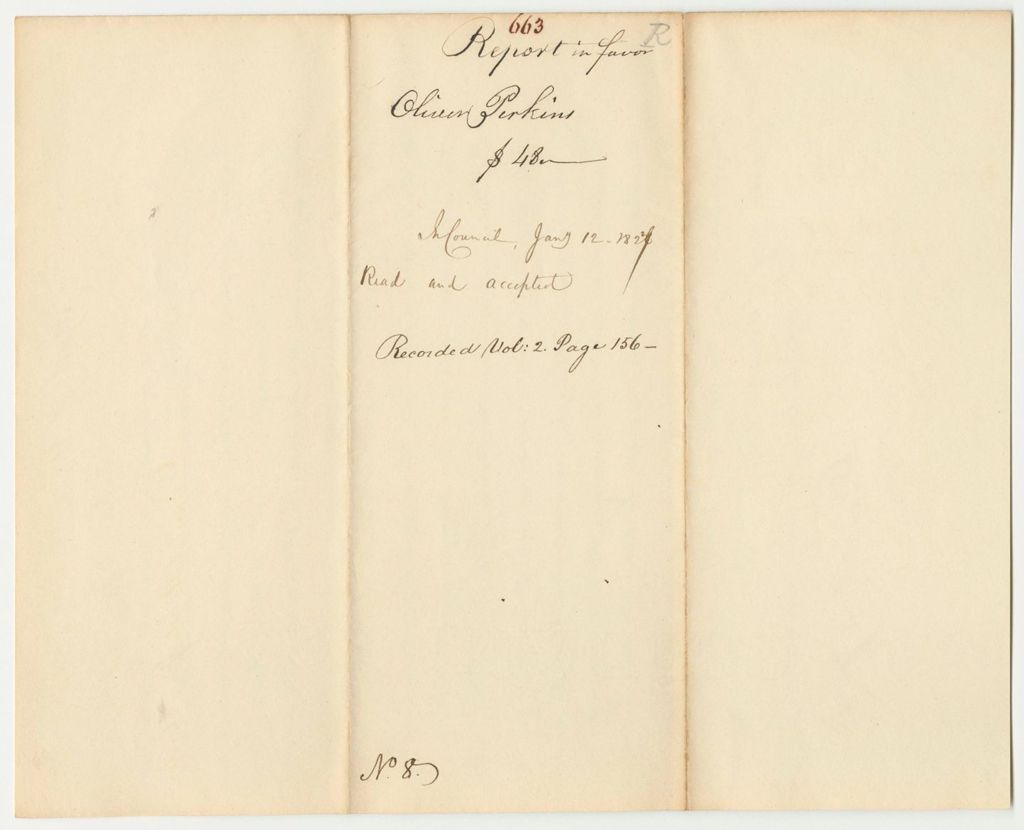 663
R
Report in favor
Oliver Perkins
$ 48
In Council, Jany 12 - 
Read and accepted
Recorded Vol: 2. Page 156 -
No. 8.